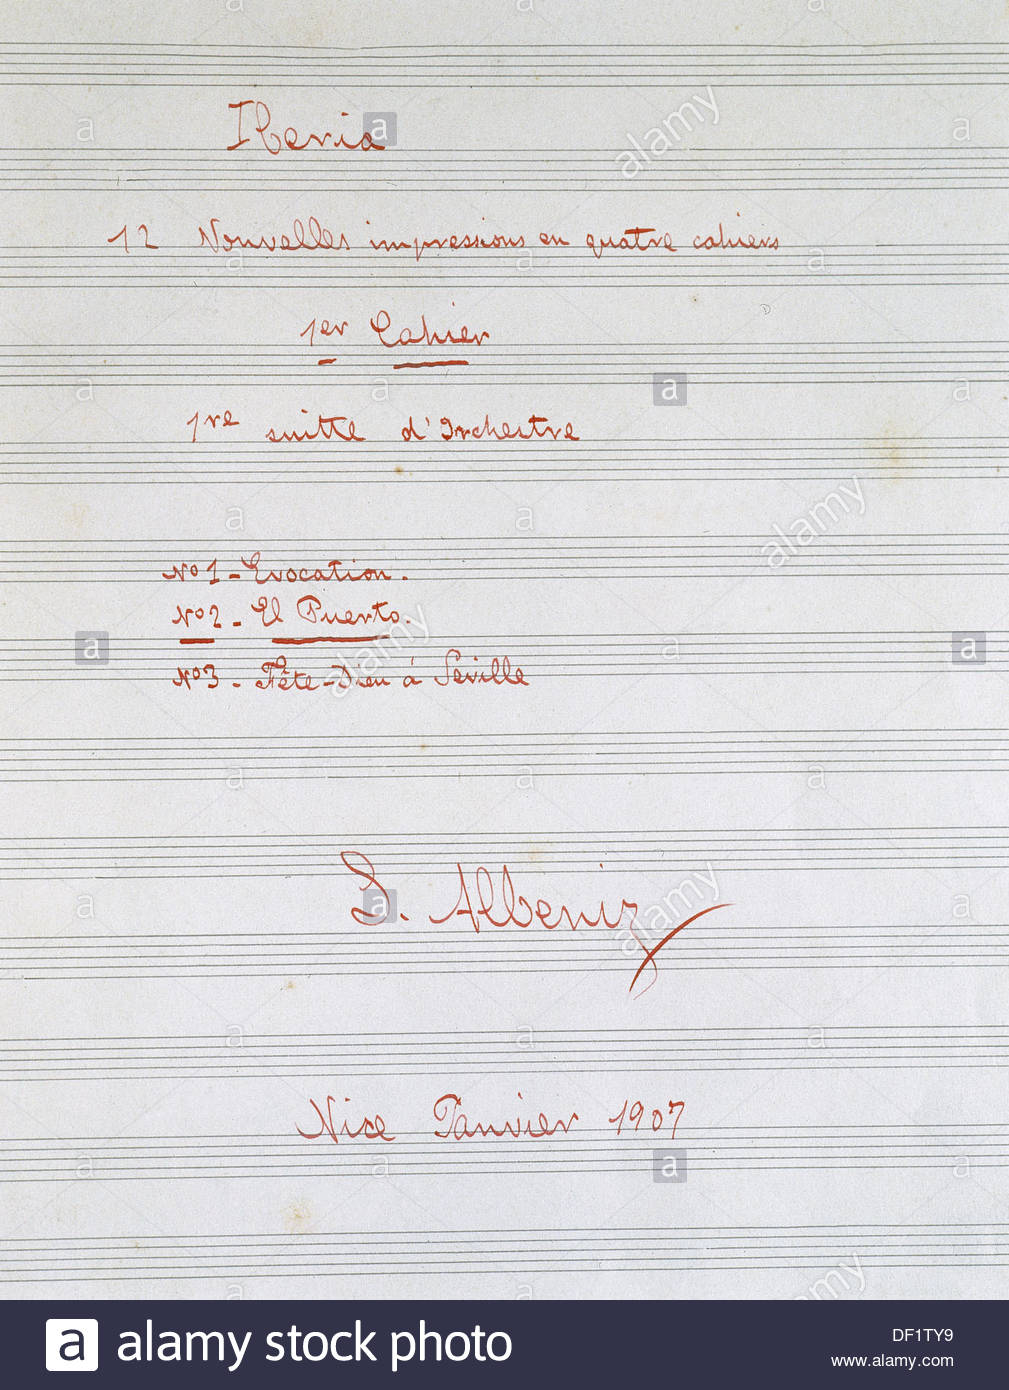 Iberia
12 Nouvelles impressions en quatre cahiers
1er Cahier
1re suitte d'Orchestre
Nº1 - Evocation.
Nº2 - El Puerto.
Nº3 - Fête-Dieu à Séville
I. Albeniz
Nice Janvier 1907
a alamy stock photo
DF1TY9
www.alamy.com